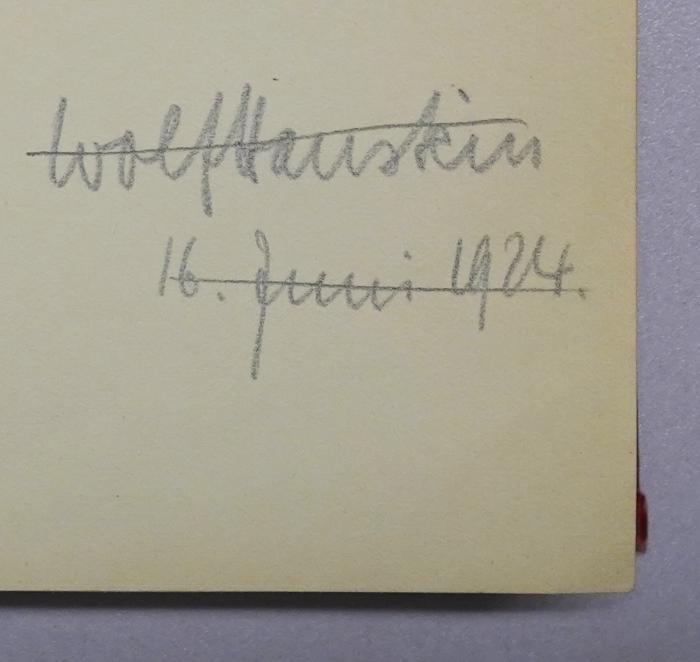 Wolf Hanskin
16. Juni 1924.